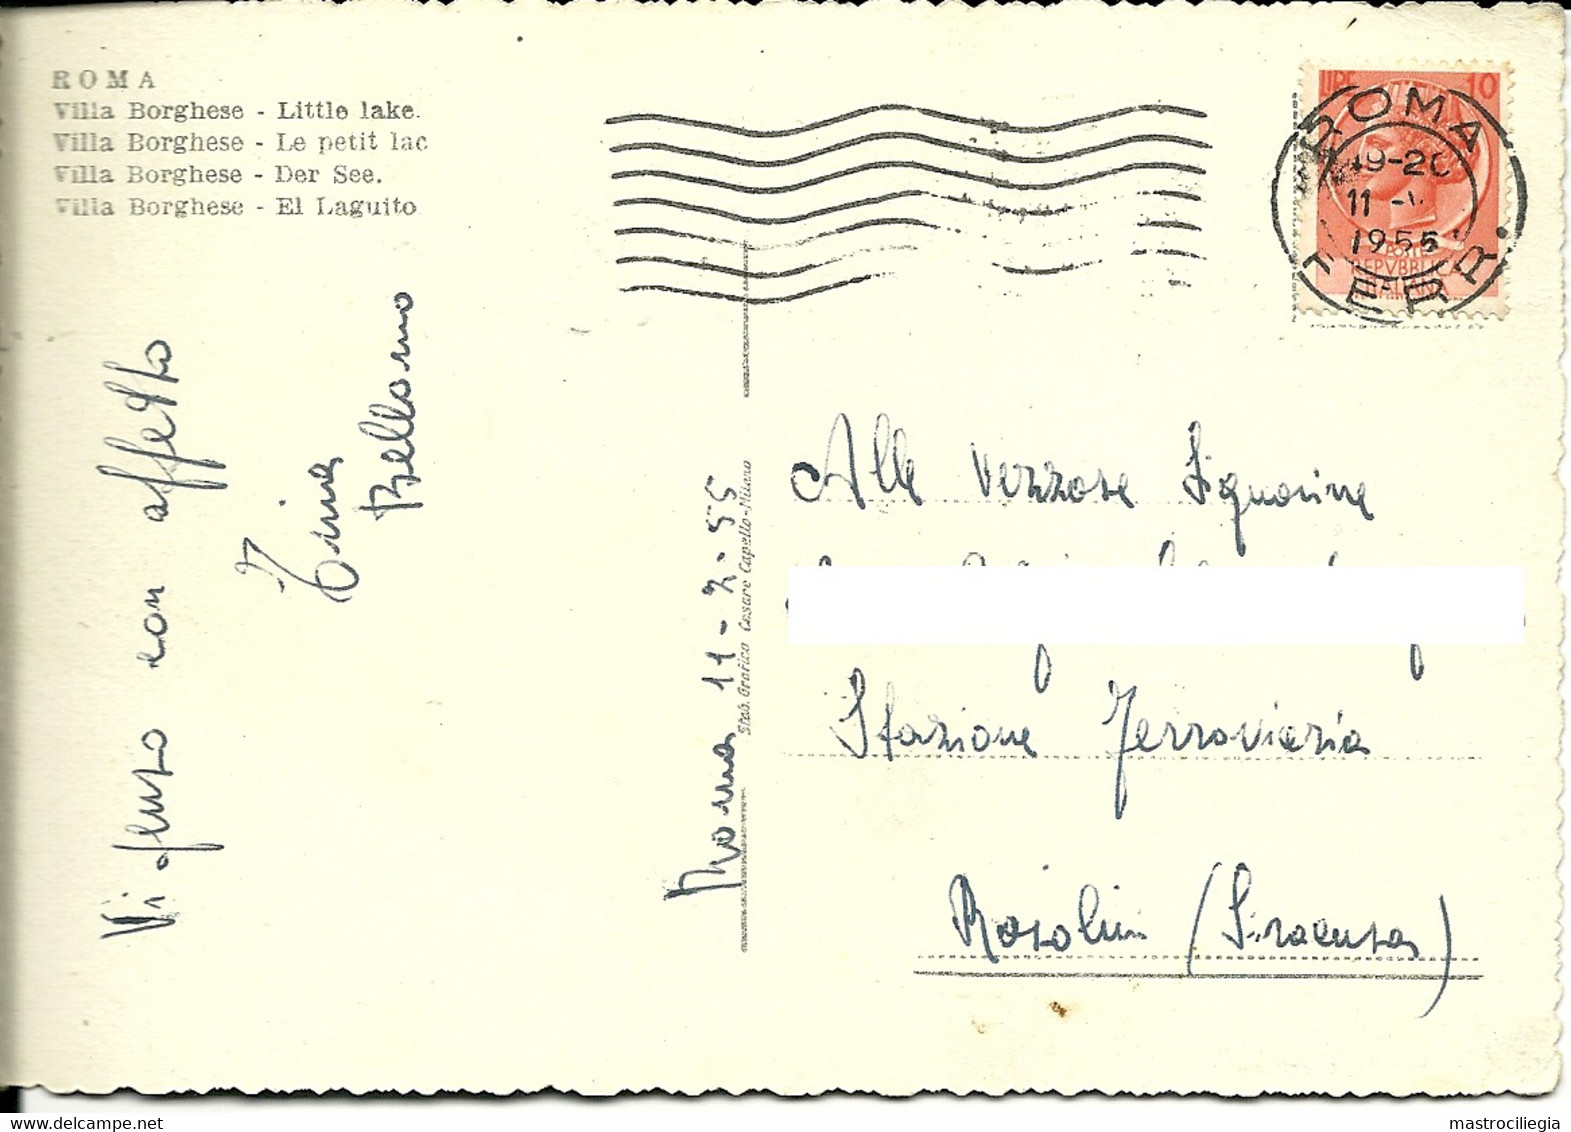 ROMA
Villa Borghese - Little lake.
Villa Borghese - Le petit lac
Villa Borghese - Der See.
Villa Borghese - El Laguito
LIRE 10
ROMA
19-20
11
1955
FERR.
POSTE
REPVBBLICA
ITALIANA
Vi penso con affetto
Tina
Bellomo
Roma 11-2-55
Stab. Grafico Cesare Capello-Milano
Alle Vezzose Signorine
Stazione Ferroviaria
Rosolini (Siracusa)
mastrociliegia